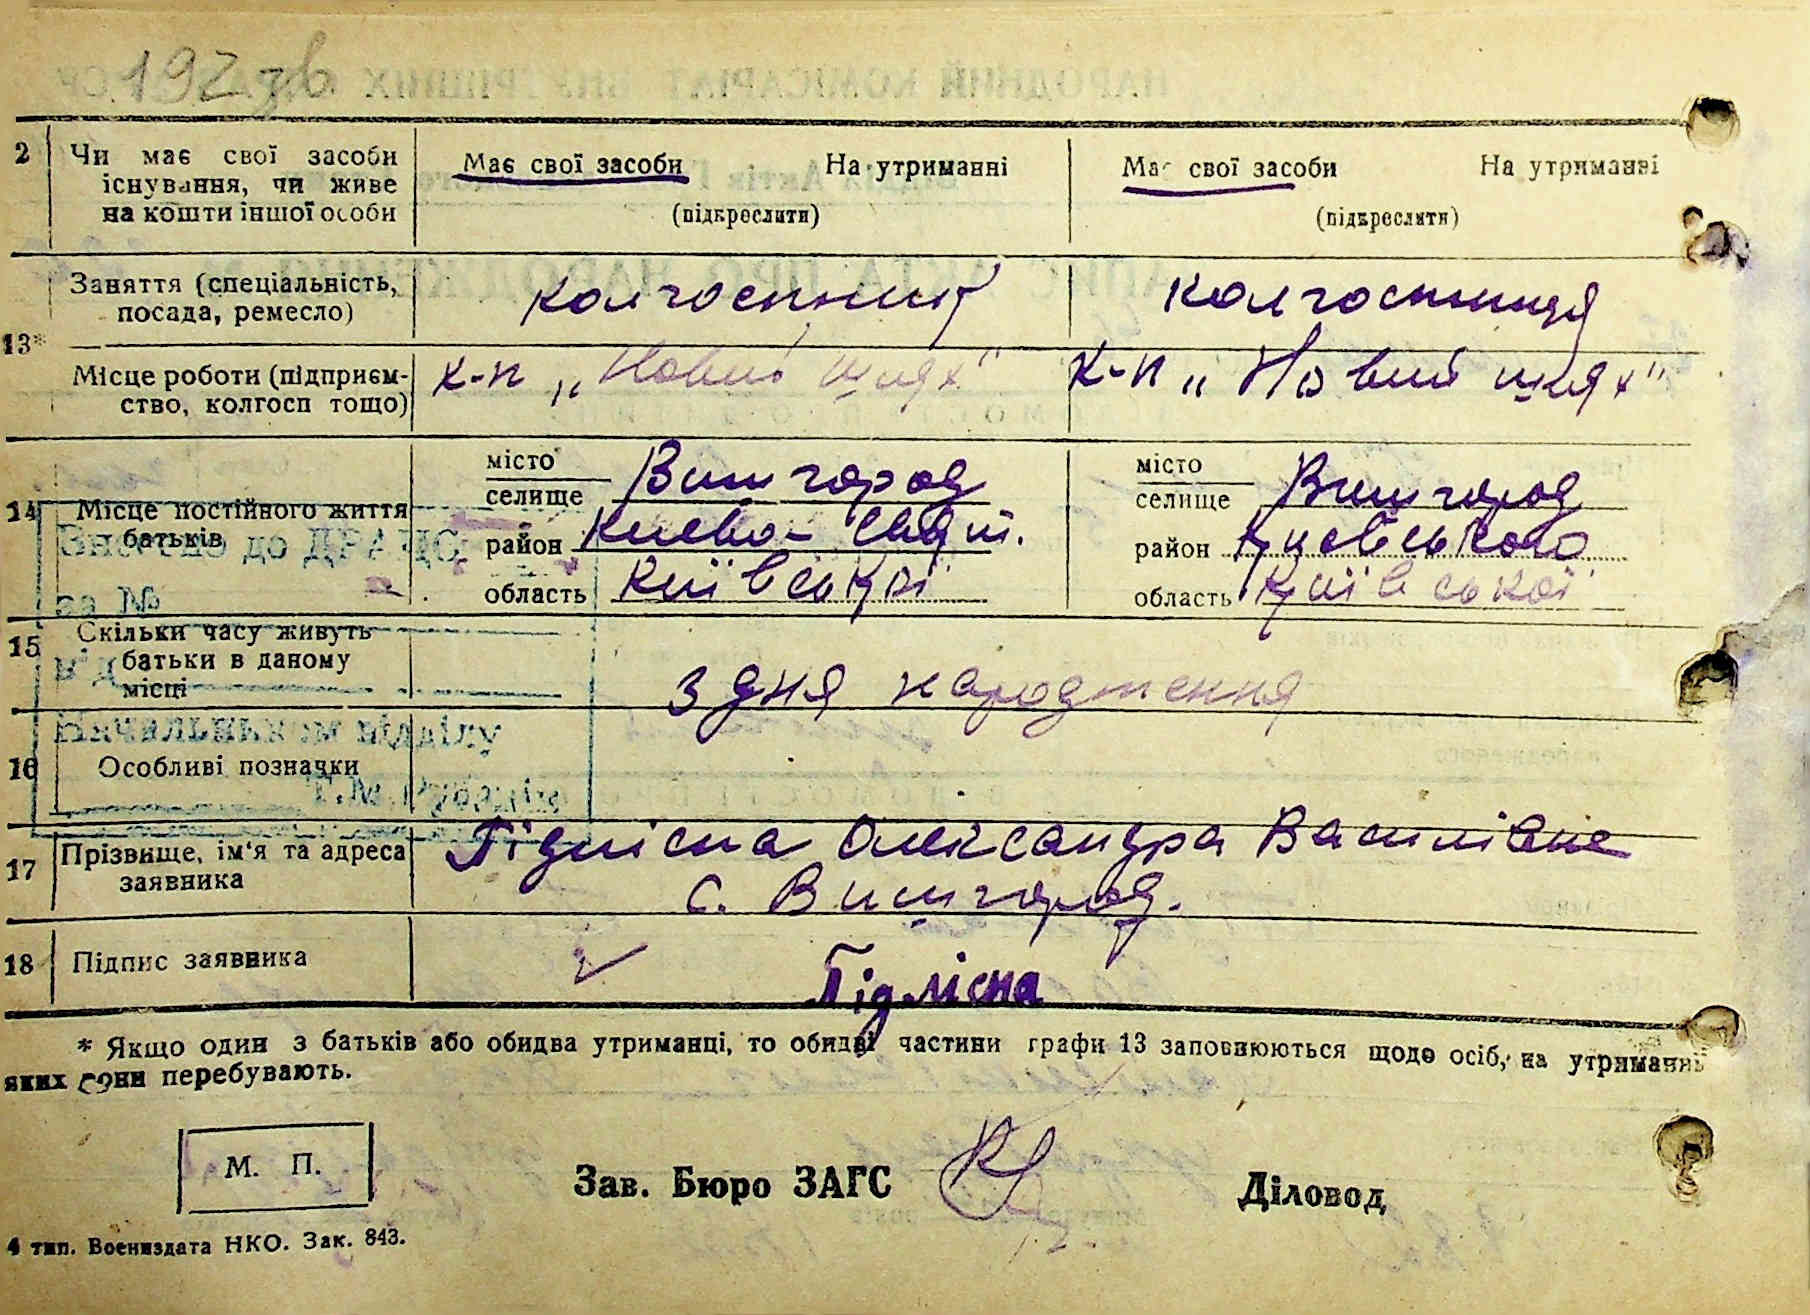 192 зв
2 Чи має свої засоби існування, чи живе на кошти іншої особи
Має свої засоби На утриманні
(підкреслити)
Має свої засоби На утриманні
(підкреслити)
13*
Заняття (спеціальність, посада, ремесло)
колгоспник
колгоспниця
Місце роботи (підприємство, колгосп тощо)
к-п „Новий шлях"
к-п „Новий шлях"
14 Місце постійного життя батьків
місто
селище Вишгород
район Києво-Свят.
область Київської
місто
селище Вишгород
район Києвського
область Київської
15 Скільки часу живуть батьки в даному місці
з дня народження
16 Особливі позначки
17 Прізвище, ім'я та адреса заявника
Підлісна Олександра Василівне
с. Вишгород.
18 Підпис заявника
Підлісна
до ДРАЦС
за №
від
Начальником відділу
* Якщо один з батьків або обидва утриманці, то обидві частини графи 13 заповнюються щодо осіб, на утриманні
яких вони перебувають.
М. П.
Зав. Бюро ЗАГС
Діловод
4 тип. Воениздата НКО. Зак. 843.